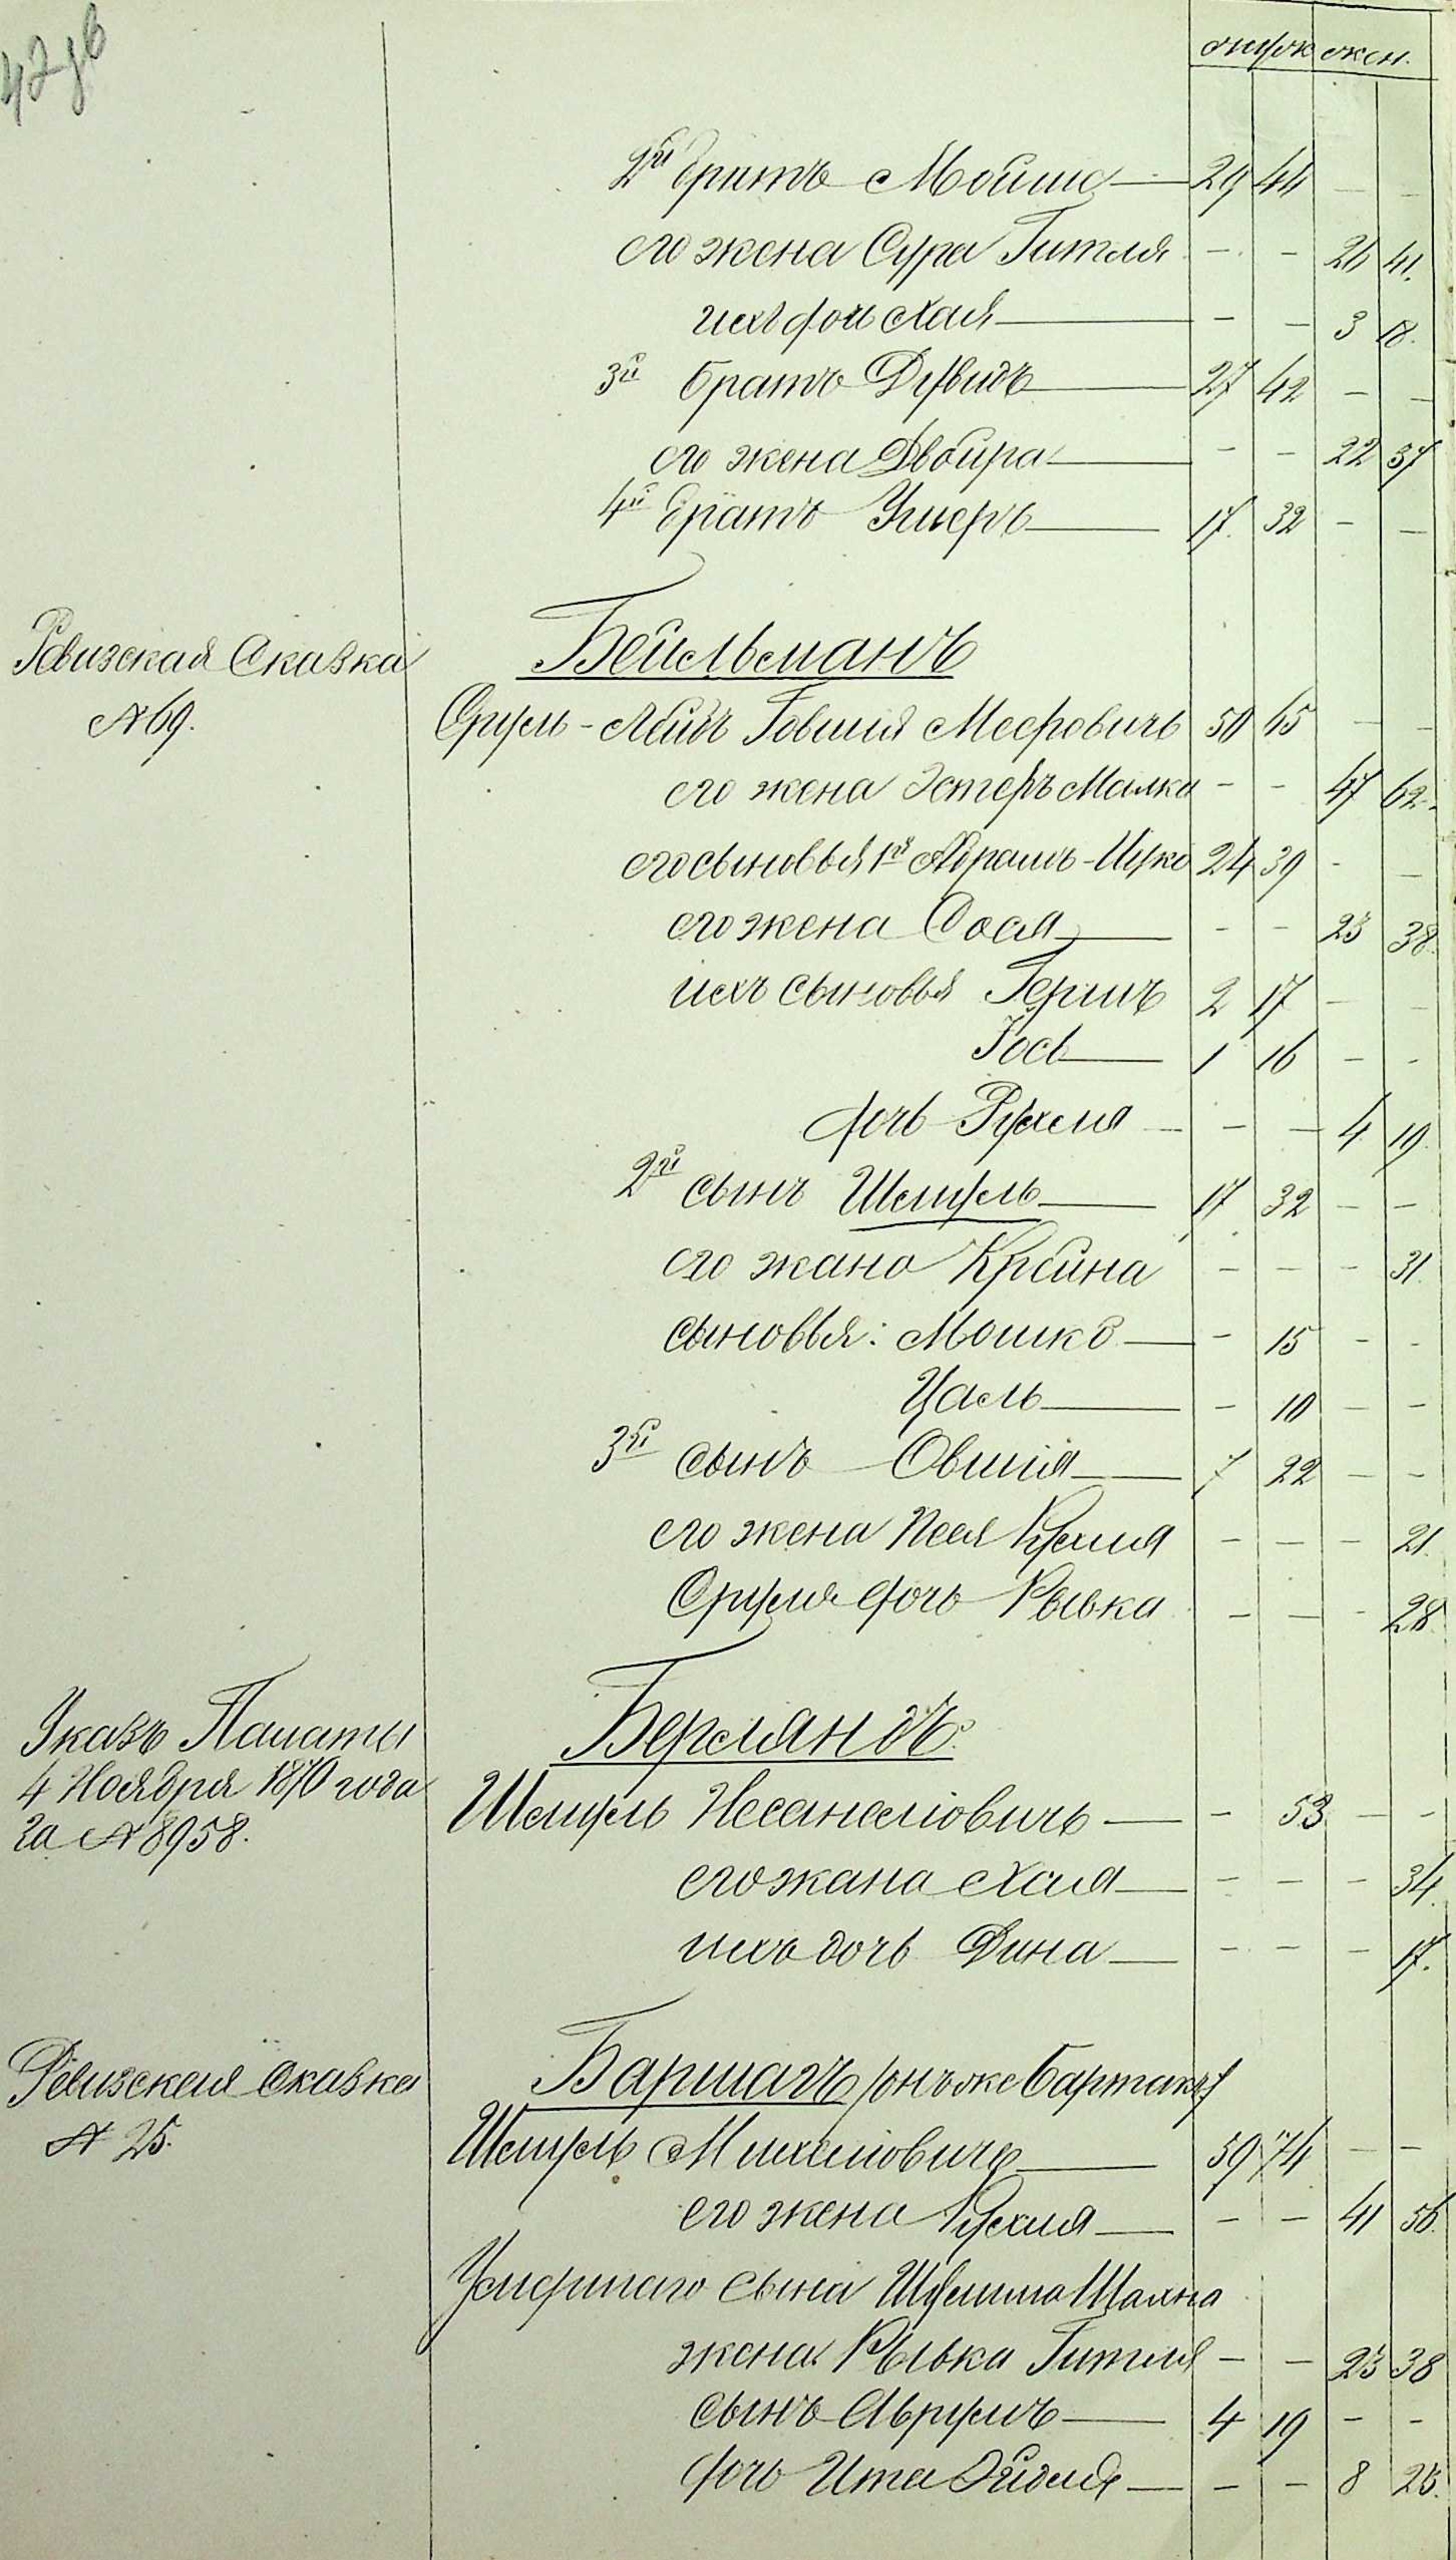 мужск жен.
2й братъ Мойше — 29 44 - -
его жена Сура Гитля - - 26 41.
ихъ дочь Хая — - - 3 18.
3й братъ Дувидъ — 27 42 - -
его жена Двойра — - - 22 37
4й братъ Ушеръ — 17 32 - -
Ревизская Сказка
№ 69.
Бейльманъ
Сруль-Лейбъ Говшия Мееровичъ 50 65 - -
его жена Эстеръ Малка - - 47 62.
его сыновья 1й Абрамъ-Ицко 24 39 - -
его жена Сося — - - 23 38.
ихъ сыновья Гершъ 2 17 - -
Іось — 1 16 - -
дочь Рухля - - 4 19.
2й сынъ Шмуль — 17 32 - -
его жана Крейна - - - 31.
сыновья: Мошко — - 15 - -
Цаль — - 10 - -
3й сынъ Овшія — 7 22 - -
его жена Песя Рухля - - - 21.
Сруля дочь Рывка - - - 28.
Указъ Палаты
4 Ноября 1870 года
за № 8958.
Бермандъ
Шмуль Несанеліовичъ — - 53 - -
его жана Хая — - - - 34.
ихъ дочь Дина — - - - 17.
Ревизская сказка
№ 25.
Баршагъ /онъ же Бартакъ/
Шмуль Михеліовичъ — 59 74 - -
его жена Рухля — - - 41 56.
Умершаго сына
жена Рывка Гитля - - 23 38
сынъ Аврумъ — 4 19 - -
дочь Ита Эйдля — - - 8 23.